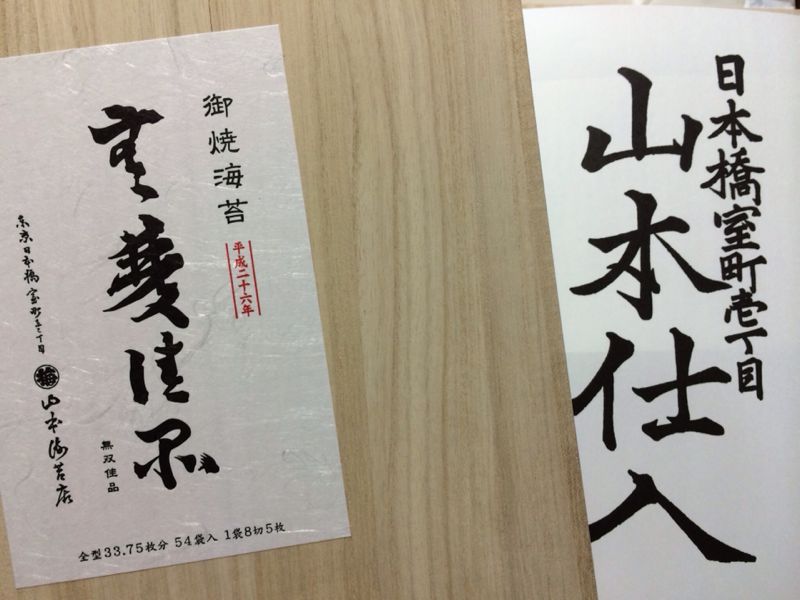 日本橋室町壱丁目
山本仕入
御焼海苔
平成二十六年
無雙佳品
無双佳品
東京日本橋室町壱丁目
梅 山本海苔店
全型33.75枚分 54袋入 1袋8切5枚